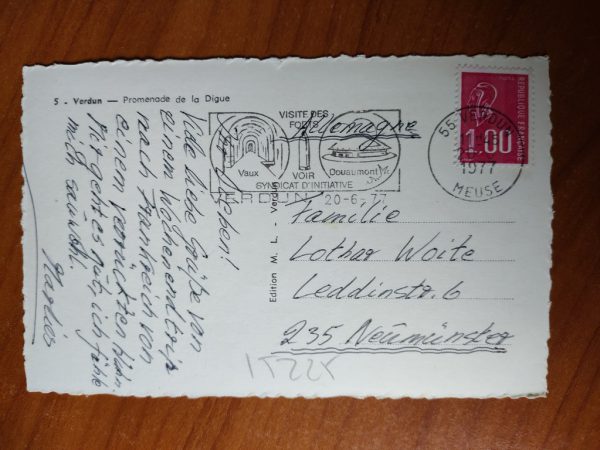 5 - Verdun — Promenade de la Digue
Ihr Lieben!
Viele liebe Grüße von
einem Wochenendtrip
nach Frankreich von
einem verrückten Huhn.
Mir geht es gut, ich fühle
mich sauwohl.
Edition M. L. - Verdun
VISITE DES
FORTS
Vaux
VOIR
Douaumont
SYNDICAT D'INITIATIVE
VERDUN 20-6-77
55 VERDUN
1977
MEUSE
REPUBLIQUE FRANÇAISE
1.00
Allemagne
Familie
Lothar Woite
Leddinstr. 6
235 Neumünster
15225